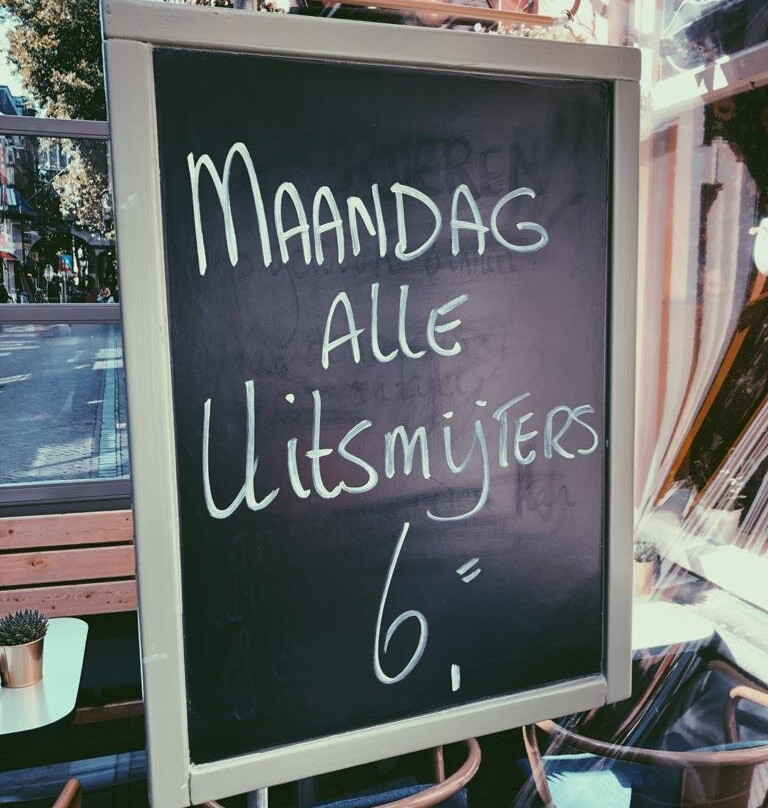 MAANDAG
ALLE
UitsmijTERS
6,=